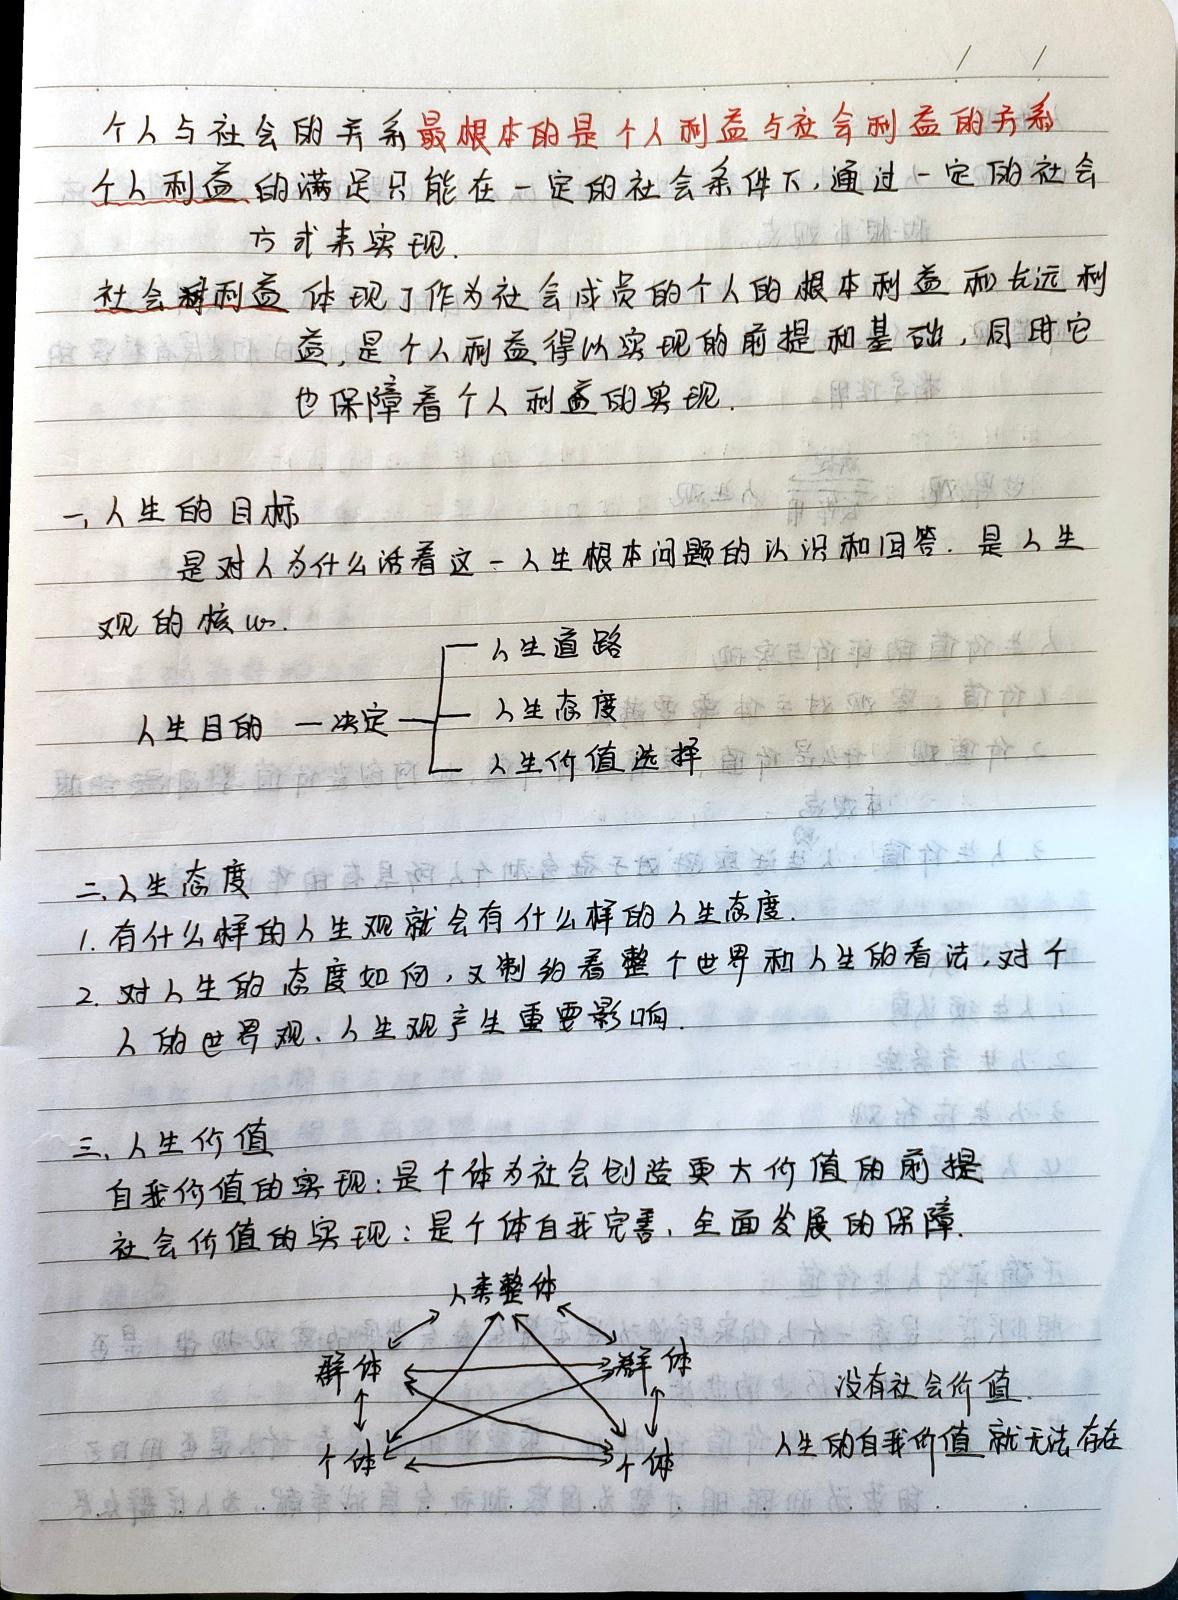 个人与社会的关系最根本的是个人利益与社会利益的关系
个人利益的满足只能在一定的社会条件下,通过一定的社会
方式来实现.
社会利益体现了作为社会成员的个人的根本利益和长远利
益,是个人利益得以实现的前提和基础,同时它
也保障着个人利益的实现.
一、人生的目标
是对人为什么活着这一人生根本问题的认识和回答.是人生
观的核心.
人生道路
人生目的 一决定一 人生态度
人生价值选择
二、人生态度
1.有什么样的人生观就会有什么样的人生态度.
2.对人生的态度如何,又制约着整个世界和人生的看法,对个
人的世界观、人生观产生重要影响.
三、人生价值
自我价值的实现:是个体为社会创造更大价值的前提
社会价值的实现:是个体自我完善、全面发展的保障.
人类整体
群体 群体
没有社会价值.
个体 个体 人生的自我价值就无法存在